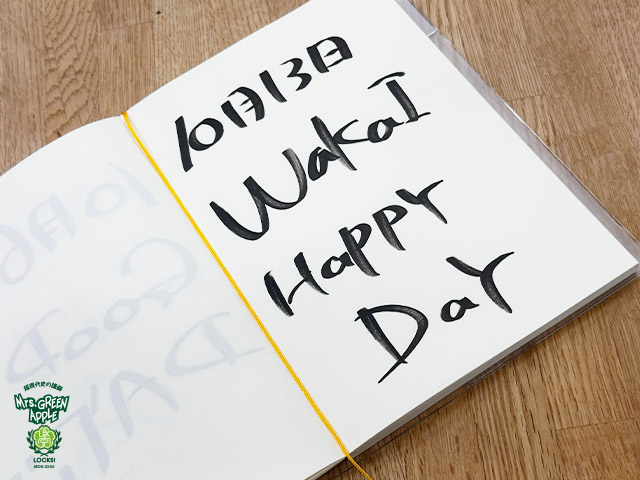 10月13日
WakaI
HaPPY
DaY
Mrs. GREEN
APPLE
LOCKS!